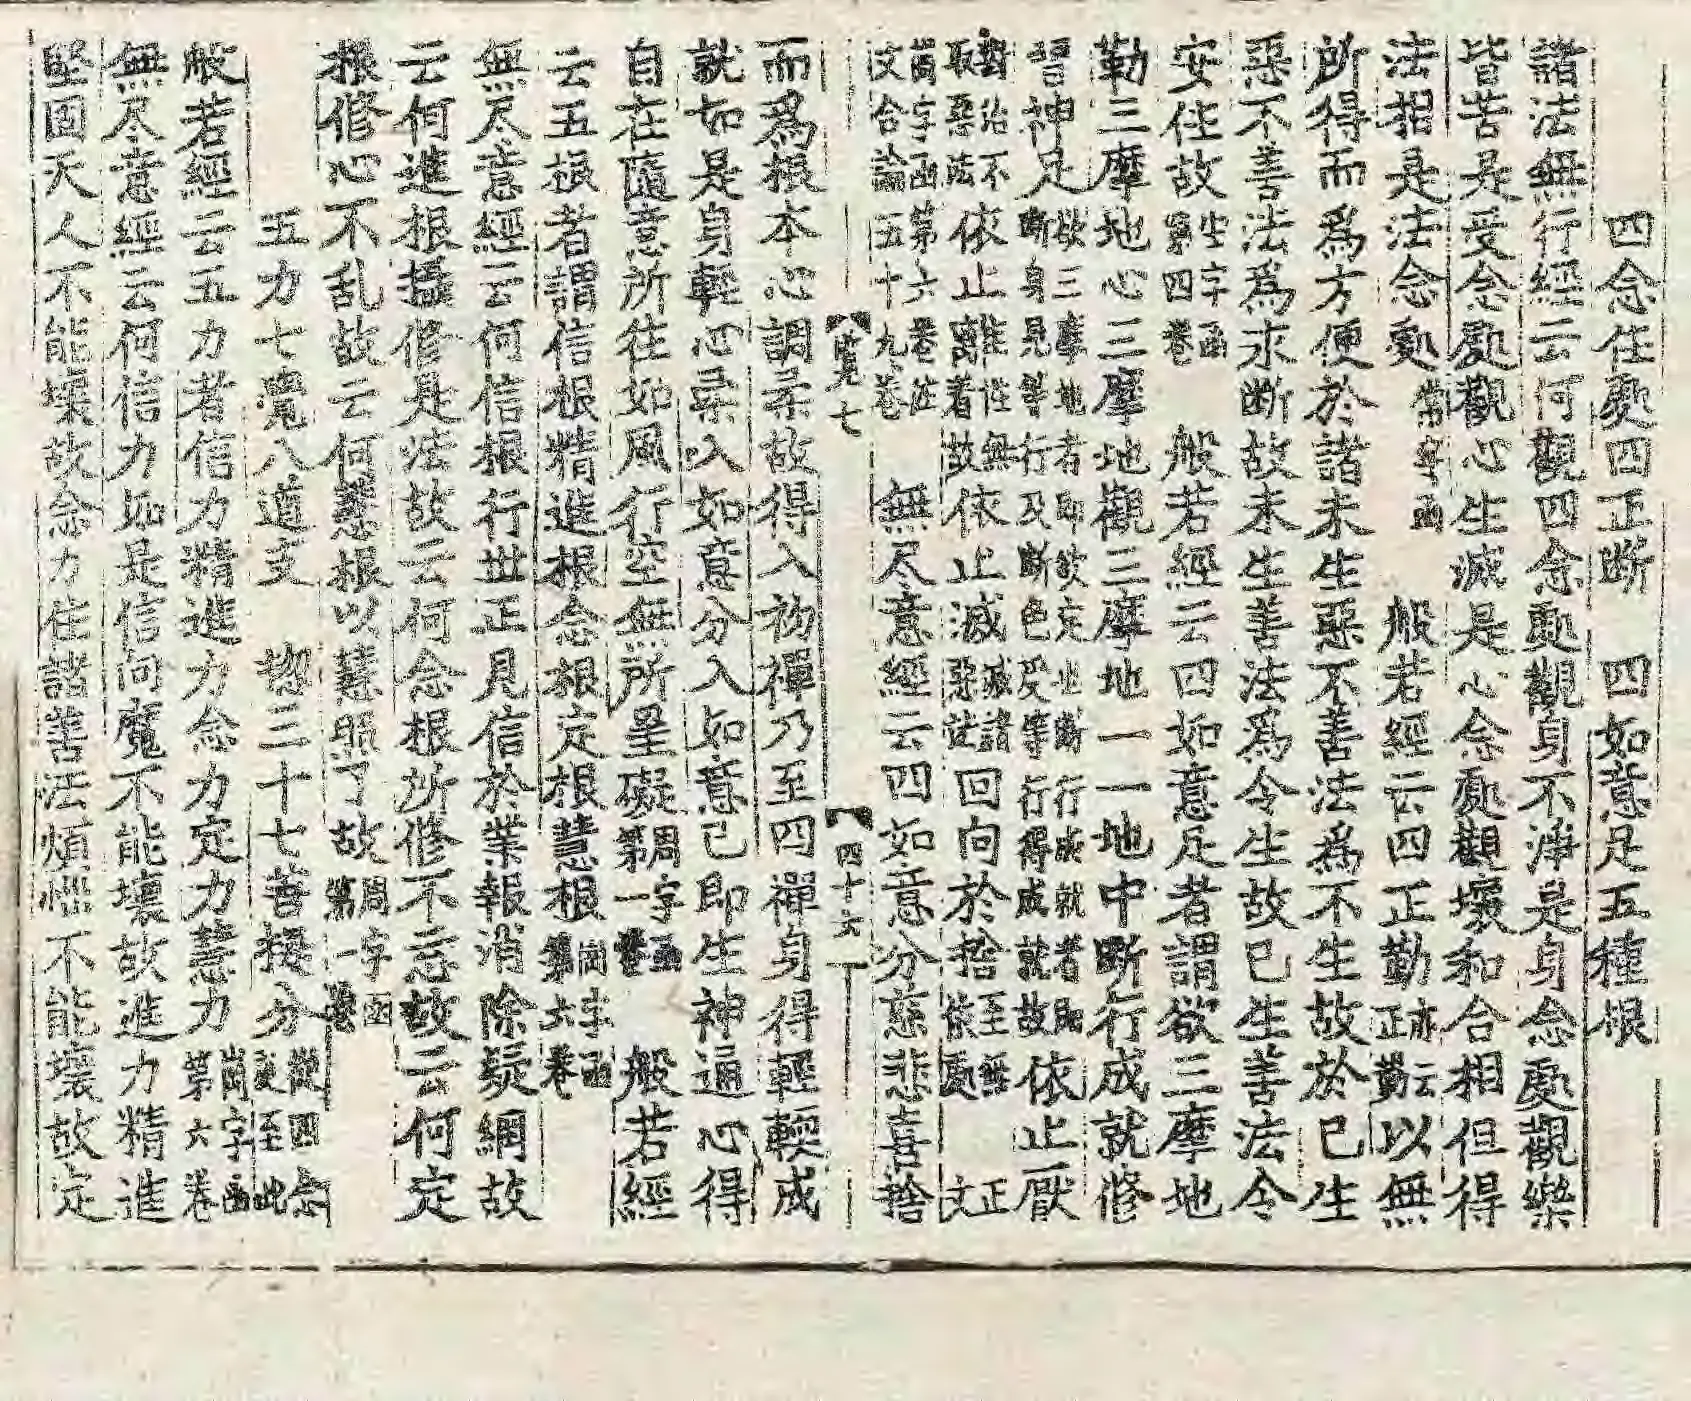 四念住處四正斷　四如意足五種根
諸法無行經云何觀四念處觀身不淨是身念處觀樂
皆苦是受念處觀心生滅是心念處觀壞和合相但得
法相是法念處常字函　般若經云四正勤亦云正勤以無
所得而爲方便於諸未生惡不善法爲不生故於已生
惡不善法爲求断故未生善法爲令生故已生善法令
安住故生字函第四卷　般若經云四如意足者謂欲三摩地
勤三摩地心三摩地觀三摩地一一地中断行成就修
習神足欲三摩地者即彼定也断行成就者即断身見等行及断色受等行得成就故依止厭
對治不取惡法依止離著故依止滅回向於捨正文
崗字函第六卷文合論五十九卷　無尽意經云四如意分慈悲喜捨
覺七　四十六
而爲根本心調柔故得入初禪乃至四禪身得輕輭成
就如是身輕心柔入如意分入如意已即生神通心得
自在隨意所往如風行空無所罣礙周字函第一卷　般若經
云五根者謂信根精進根念根定根慧根崗字函第六卷
無尽意經云何信根行世正見信於業報消除疑網故
云何進根攝修是法故云何念根所修不忘故云何定
根修心不乱故云何慧根以慧照了故周字函第一卷
五力七覺八道支　揔三十七菩提分從四念處至此
般若經云五力者信力精進力念力定力慧力崗字函第六卷
無尽意經云何信力如是信向魔不能壞故進力精進
堅固天人不能壞故念力住諸善法煩惱不能壞故定